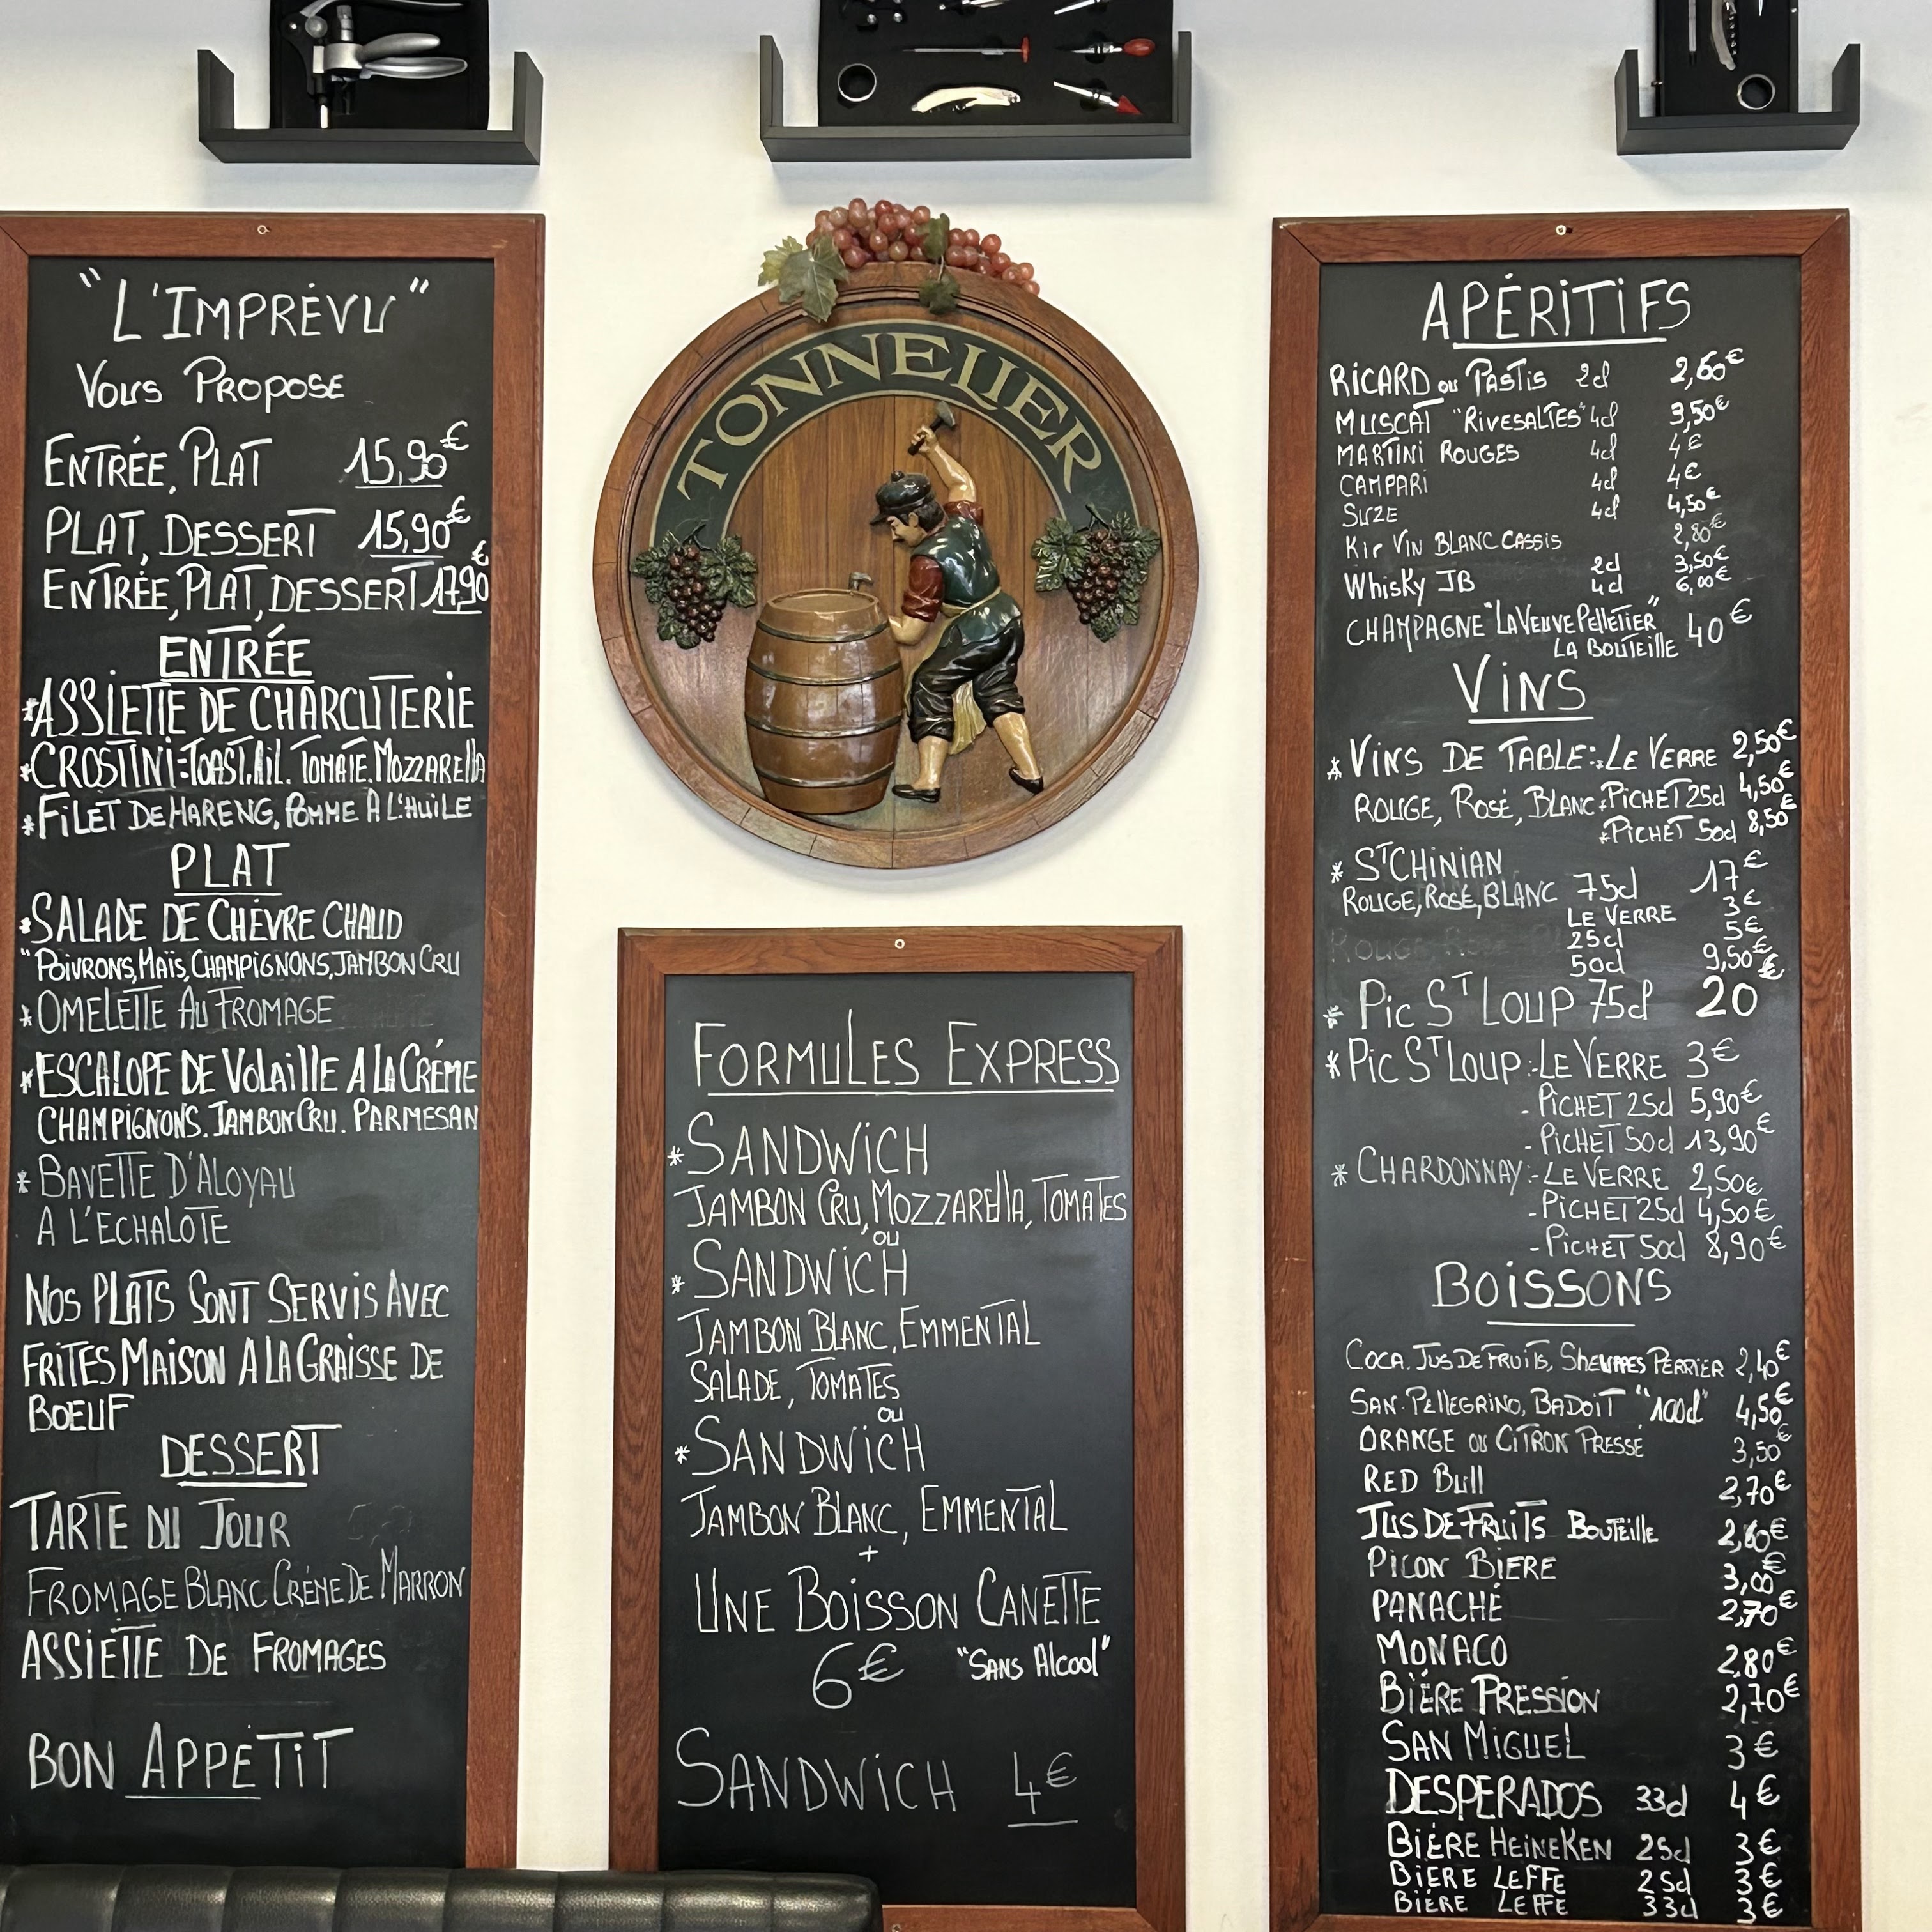 "L'IMPRÉVU"
Vous PROPOSE
ENTRÉE, PLAT 15,90€
PLAT, DESSERT 15,90€
ENTRÉE, PLAT, DESSERT 17,90€
ENTRÉE
*ASSIETTE DE CHARCUTERIE
*CROSTINI: TOAST. AiL. TOMATE. MOZZARElla
*FILET DE HARENG, POMME A L'HUILE
PLAT
*SALADE DE CHÈVRE CHAUD
"POIVRONS, MAÏS, CHAMPIGNONS, JAMBON CRU
*OMELETTE AU FROMAGE
*ESCALOPE DE VOLAILLE A LA CRÉME
CHAMPIGNONS. JAMBON CRU. PARMESAN
*BAVETTE D'ALOYAU
A L'ECHALOTE
NOS PLATS SONT SERVIS AVEC
FRITES MAISON A LA GRAISSE DE
BOEUF
DESSERT
TARTE DU JOUR
FROMAGE BLANC CRÉME DE MARRON
ASSIETTE DE FROMAGES
BON APPÉTIT
TONNELIER
FORMULES EXPRESS
*SANDWICH
JAMBON CRU, MOZZARElla, TOMATES
OU
*SANDWICH
JAMBON BLANC, EMMENTAL
SALADE, TOMATES
OU
*SANDWICH
JAMBON BLANC, EMMENTAL
+
UNE BOISSON CANETTE
6€ "SANS Alcool"
SANDWICH 4€
APÉRITIFS
RICARD ou PASTIS 2cl 2,60€
MUSCAT "RIVESALTES" 4cl 3,50€
MARTINI ROUGES 4cl 4€
CAMPARI 4cl 4€
SUZE 4cl 4,50€
Kir VIN BLANC CASSIS 2,80€
Whisky JB 2cl 3,50€
4cl 6,00€
CHAMPAGNE "LA VEUVE PELLETIER"
LA BOUTEILLE 40€
VINS
*VINS DE TABLE: *LE VERRE 2,50€
ROUGE, ROSÉ, BLANC *PICHET 25cl 4,50€
*PICHET 50cl 8,50€
*ST CHINIAN
ROUGE, ROSÉ, BLANC 75cl 17€
LE VERRE 3€
25cl 5€
50cl 9,50€
*PIC ST LOUP 75cl 20€
*PIC ST LOUP:-LE VERRE 3€
- PICHET 25cl 5,90€
- PICHET 50cl 13,90€
*CHARDONNAY:-LE VERRE 2,50€
- PICHET 25cl 4,50€
- PICHET 50cl 8,90€
BOISSONS
COCA. JUS DE FRUITS, PERRIER 2,40€
SAN-PELLEGRINO, BADOIT "100cl" 4,50€
ORANGE ou CITRON PRESSÉ 3,50€
RED Bull 2,70€
JUS DE FRUITS BOUTEILLE 2,60€
PICON BIÈRE 3,00€
PANACHÉ 2,70€
MONACO 2,80€
BIÈRE PRESSION 2,70€
SAN MIGUEL 3€
DESPERADOS 33cl 4€
BIÈRE HEINEKEN 25cl 3€
BIÈRE LEFFE 25cl 3€
BIÈRE LEFFE 33cl 3€